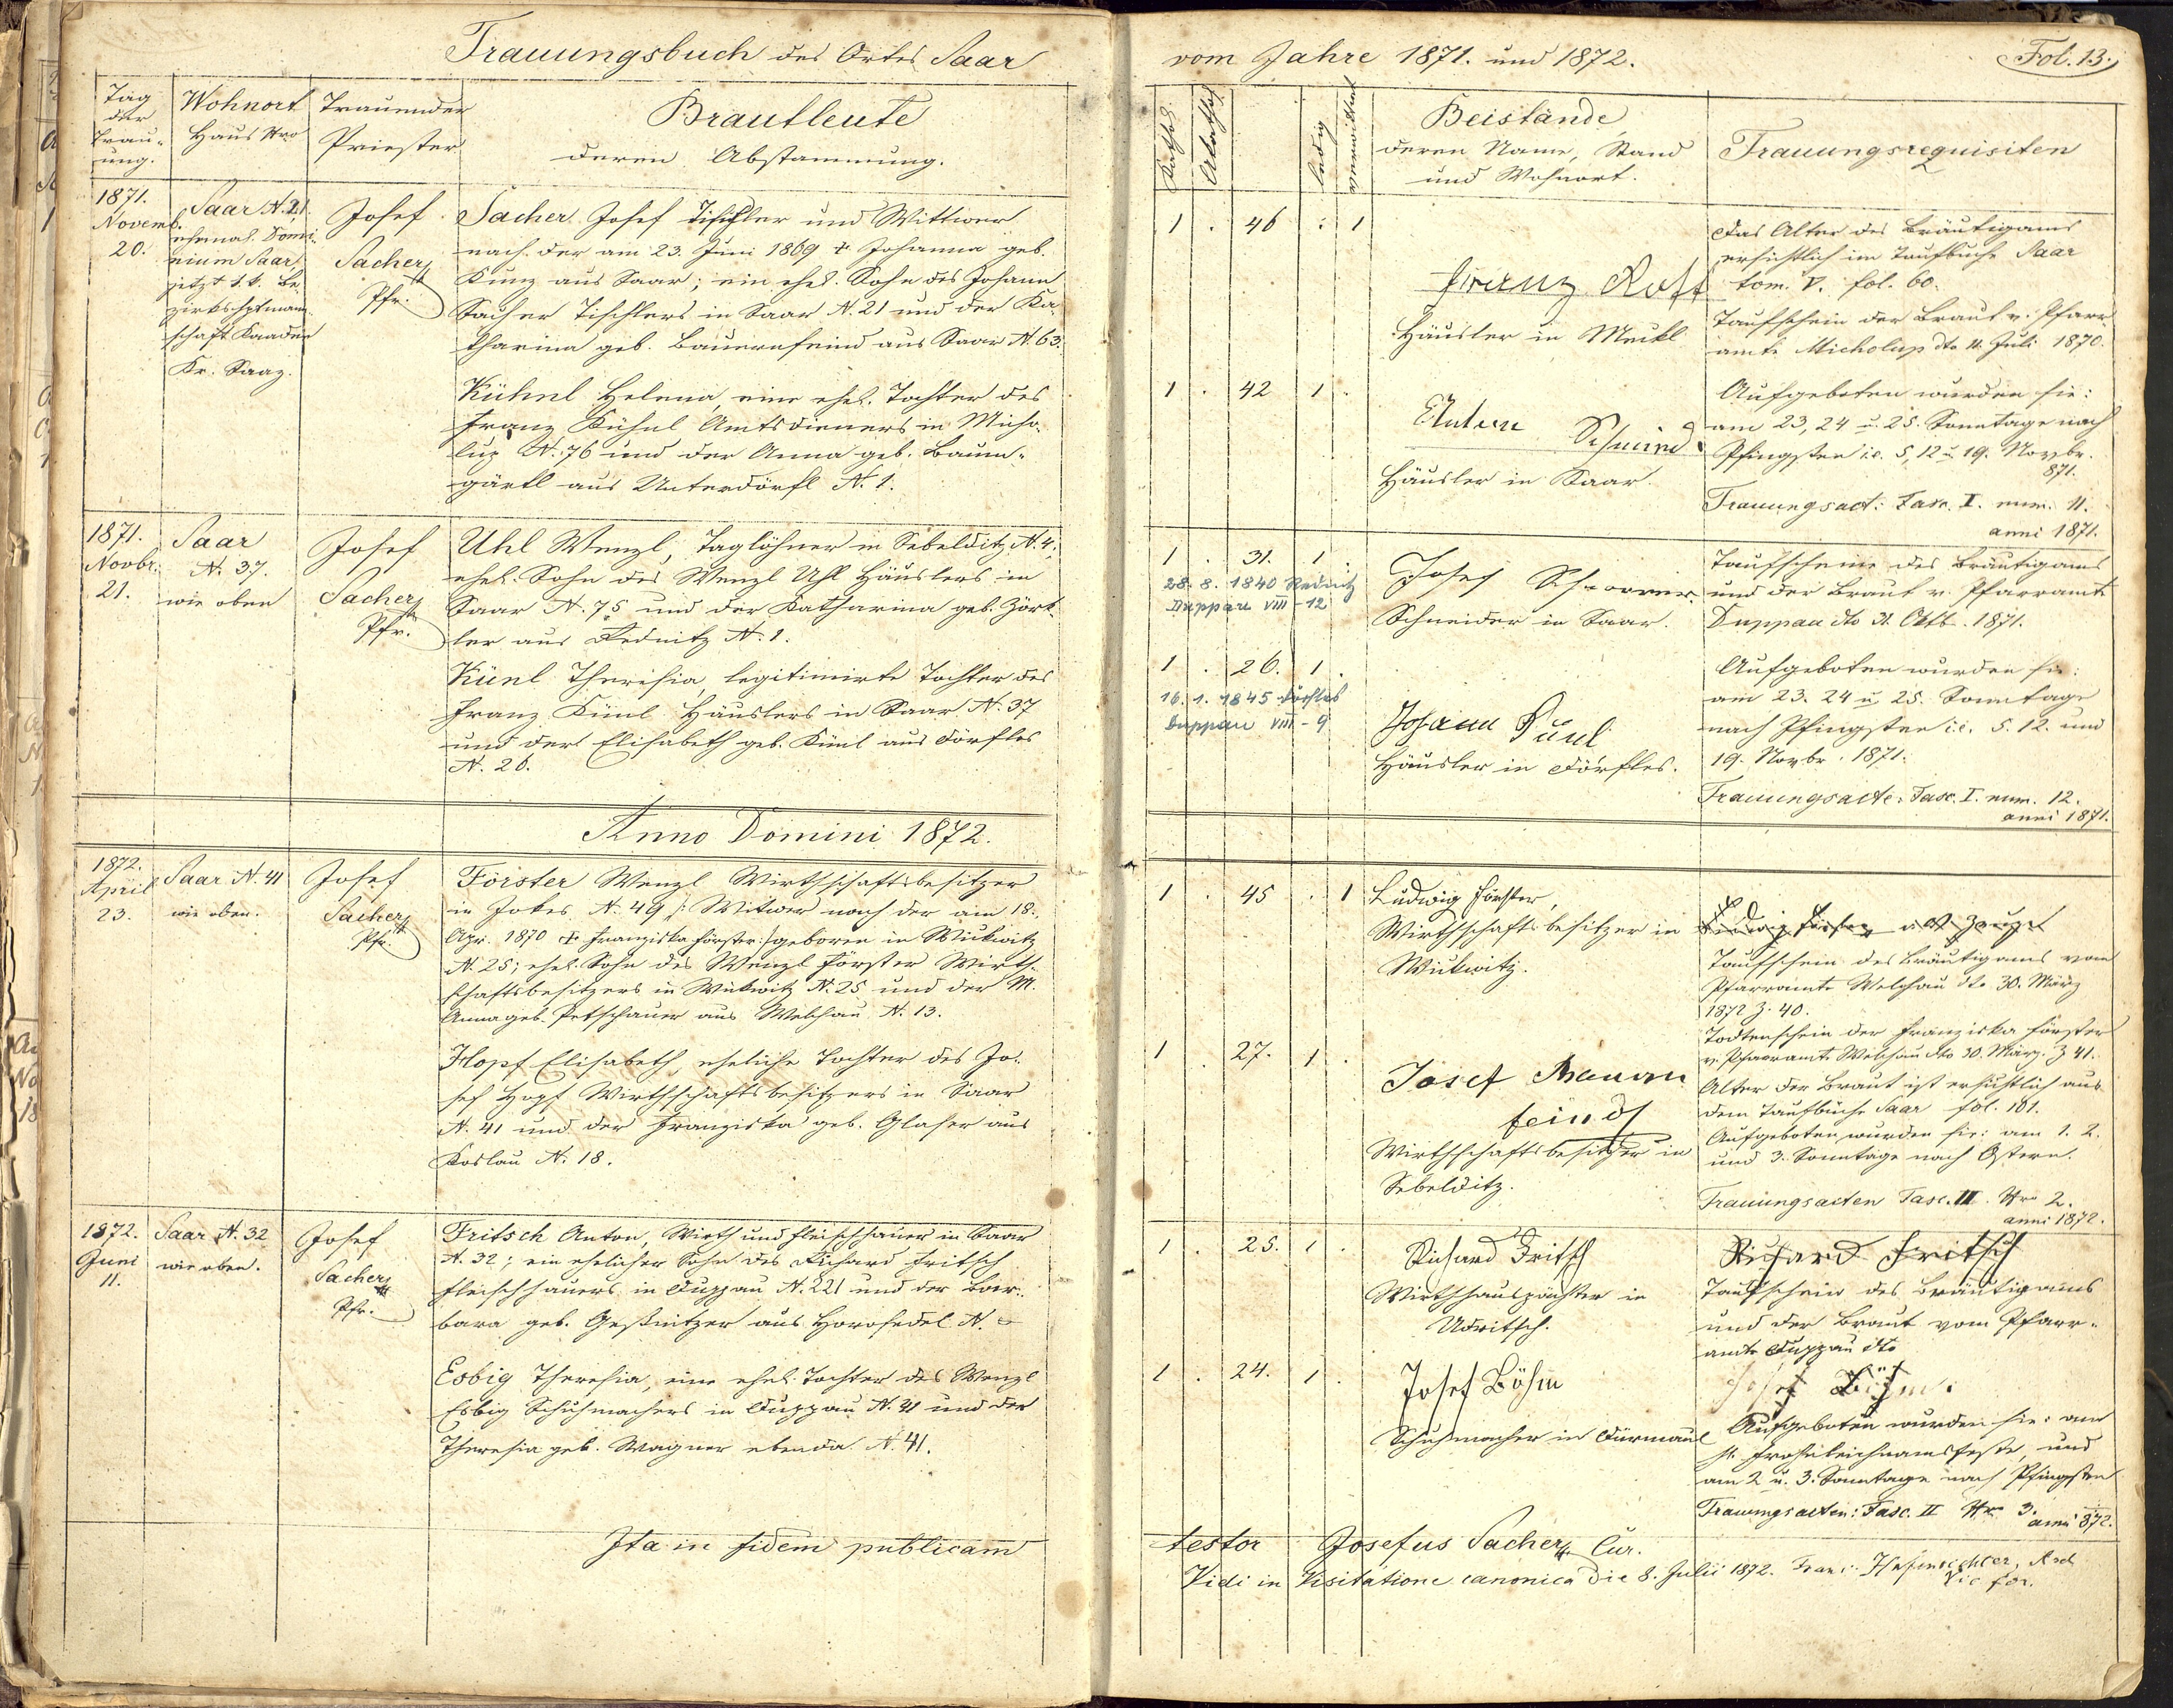 Trauungsbuch des Ortes Saar
Tag
der
Trau-
ung.
Wohnort
Haus Nro
Trauender
Priester.
Brautleute
deren Abstammung.
1871.
Novemb.
20.
Saar N. 21.
ehemal. Domi-
nium Saar,
jetzt k. k. Be-
zirkshptmann-
schaft Kaaden
Kr. Saaz.
Josef
Sacher
Pfr.
Sacher Josef Tischler und Wittwer
nach der am 23. Juni 1869 + Johanna geb.
Kunz aus Saar; ein ehel. Sohn des Johann
Sacher Tischlers in Saar N. 21 und der Ka-
tharina geb. Bauernfeind aus Saar N. 63.
Kühnl Helena, eine ehel. Tochter des
Franz Kühnl Amtsdieners in Micho-
lup N. 76 und der Anna geb. Baum-
gärtl aus Unterdörfl N. 1.
1871.
Novbr.
21.
Saar
N. 37.
wie oben
Josef
Sacher
Pfr.
Uhl Wenzl, Taglöhner in Sebelditz N. 4;
ehel. Sohn des Wenzl Uhl Häuslers in
Saar N. 75 und der Katharina geb. Zörk-
ler aus Rednitz N. 1.
Künl Theresia, legitimirte Tochter des
Franz Künl Häuslers in Saar N. 37
und der Elisabeth geb. Künl aus Dörfles
N. 26.
Anno Domini 1872.
1872.
April
23.
Saar N. 41
wie oben.
Josef
Sacher
Pfr.
Förster Wenzl Wirthschaftsbesitzer
in Jokes N. 49 /: Witwer nach der am 18.
Apr. 1870 + Franziska Förster :/ geboren in Wickwitz
N. 25; ehel. Sohn des Wenzl Förster Wirth-
schaftsbesitzers in Wickwitz N. 25 und der M.
Anna geb. Petschauer aus Welchau N. 13.
Hopf Elisabeth, eheliche Tochter des Jo-
sef Hopf Wirthschaftsbesitzers in Saar
N. 41 und der Franziska geb. Glaser aus
Koslau N. 18.
1872.
Juni
11.
Saar N. 32
wie oben.
Josef
Sacher
Pfr.
Fritsch Anton, Wirth und Fleischhauer in Saar
N. 32; ein ehelicher Sohn des Richard Fritsch
Fleischhauers in Duppau N. 221 und der Bar-
bara geb. Geßnitzer aus Horosedel N. -
Esbig Theresia, eine ehel. Tochter des Wenzl
Esbig Schuhmachers in Duppau N. 41 und der
Theresia geb. Wagner ebenda N. 41.
Ita in fidem publicam
vom Jahre 1871. und 1872.
Fol. 13.
Kathol.
Akathol.
ledig
verwittwet
Beistände
deren Name, Stand
und Wohnort.
Trauungsrequisiten
1 . 46 : 1
Franz
Häusler in Meckl
Das Alter des Bräutigams
ersichtlich im Taufbuche Saar
tom. V. fol. 60.
Taufschein der Braut v. Pfarr-
amte Micholup dto 11. Juli 1870.
1 . 42 1 .
Anton Schmied
Häusler in Saar.
Aufgeboten wurden sie:
am 23, 24 u. 25. Sonntage nach
Pfingsten i.e. 5, 12 u. 19. Novbr.
871.
Trauungsact: Fasc. I. num. 11.
anni 1871.
1 . 31. 1 .
28. 8. 1840 Rednitz
Duppau VIII - 12
Josef
Schneider in Saar.
Taufscheine des Bräutigams
und der Braut v. Pfarramte
Duppau dto 31. Oktb. 1871.
1 . 26. 1 .
16. 1. 1845 Dörfles
Duppau VIII - 9
Johann Künl
Häusler in Dörfles.
Aufgeboten wurden sie:
am 23. 24 u. 25. Sonntage
nach Pfingsten i.e. 5. 12. und
19. Novbr. 1871.
Trauungsacte: Fasc. I. num. 12.
anni 1871.
1 . 45 . 1
Ludwig Förster,
Wirthschaftsbesitzer in
Wickwitz.
Ludwig Förster als Zeuge
Taufschein des Bräutigams vom
Pfarramte Welchau dto 30. März
1872 Z. 40.
Todtenschein der Franziska Förster
v. Pfarramte Welchau dto 30. März. Z 41.
1 . 27. 1 .
Josef Bauern
feind
Wirthschaftsbesitzer in
Sebelditz.
Alter der Braut ist ersichtlich aus
dem Taufbuche Saar fol. 101.
Aufgeboten wurden sie: am 1. 2.
und 3. Sonntage nach Ostern.
Trauungsacten Fasc. II Nro 2.
anni 1872.
1 . 25. 1 .
Richard Fritsch
Wirthshauspächter in
Udritsch.
Richard Fritsch
Taufschein des Bräutigams
und der Braut vom Pfarr-
amte Duppau dto
1 . 24. 1 .
Josef Böhm
Schuhmacher in Dürmaul
Josef Böhm.
Aufgeboten wurden sie: am
h. Frohnleichnamsfeste, und
am 2 u. 3. Sonntage nach Pfingsten
Trauungsacten: Fasc. II Nr 3.
anni 872.
testor Josefus Sacher Cur.
Vidi in Visitatione canonica die 8. Julii 1872. Franc.
Vic for.